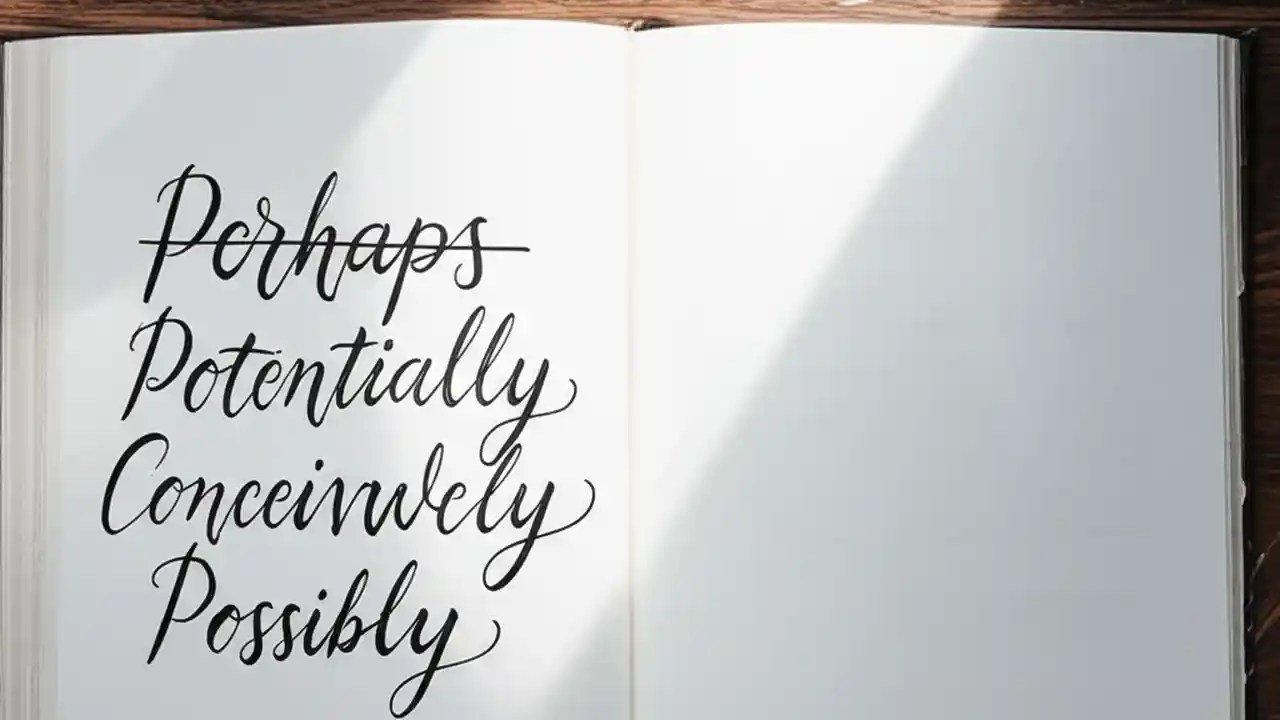 Perhaps
Potentially
Conceivwely
Possibly